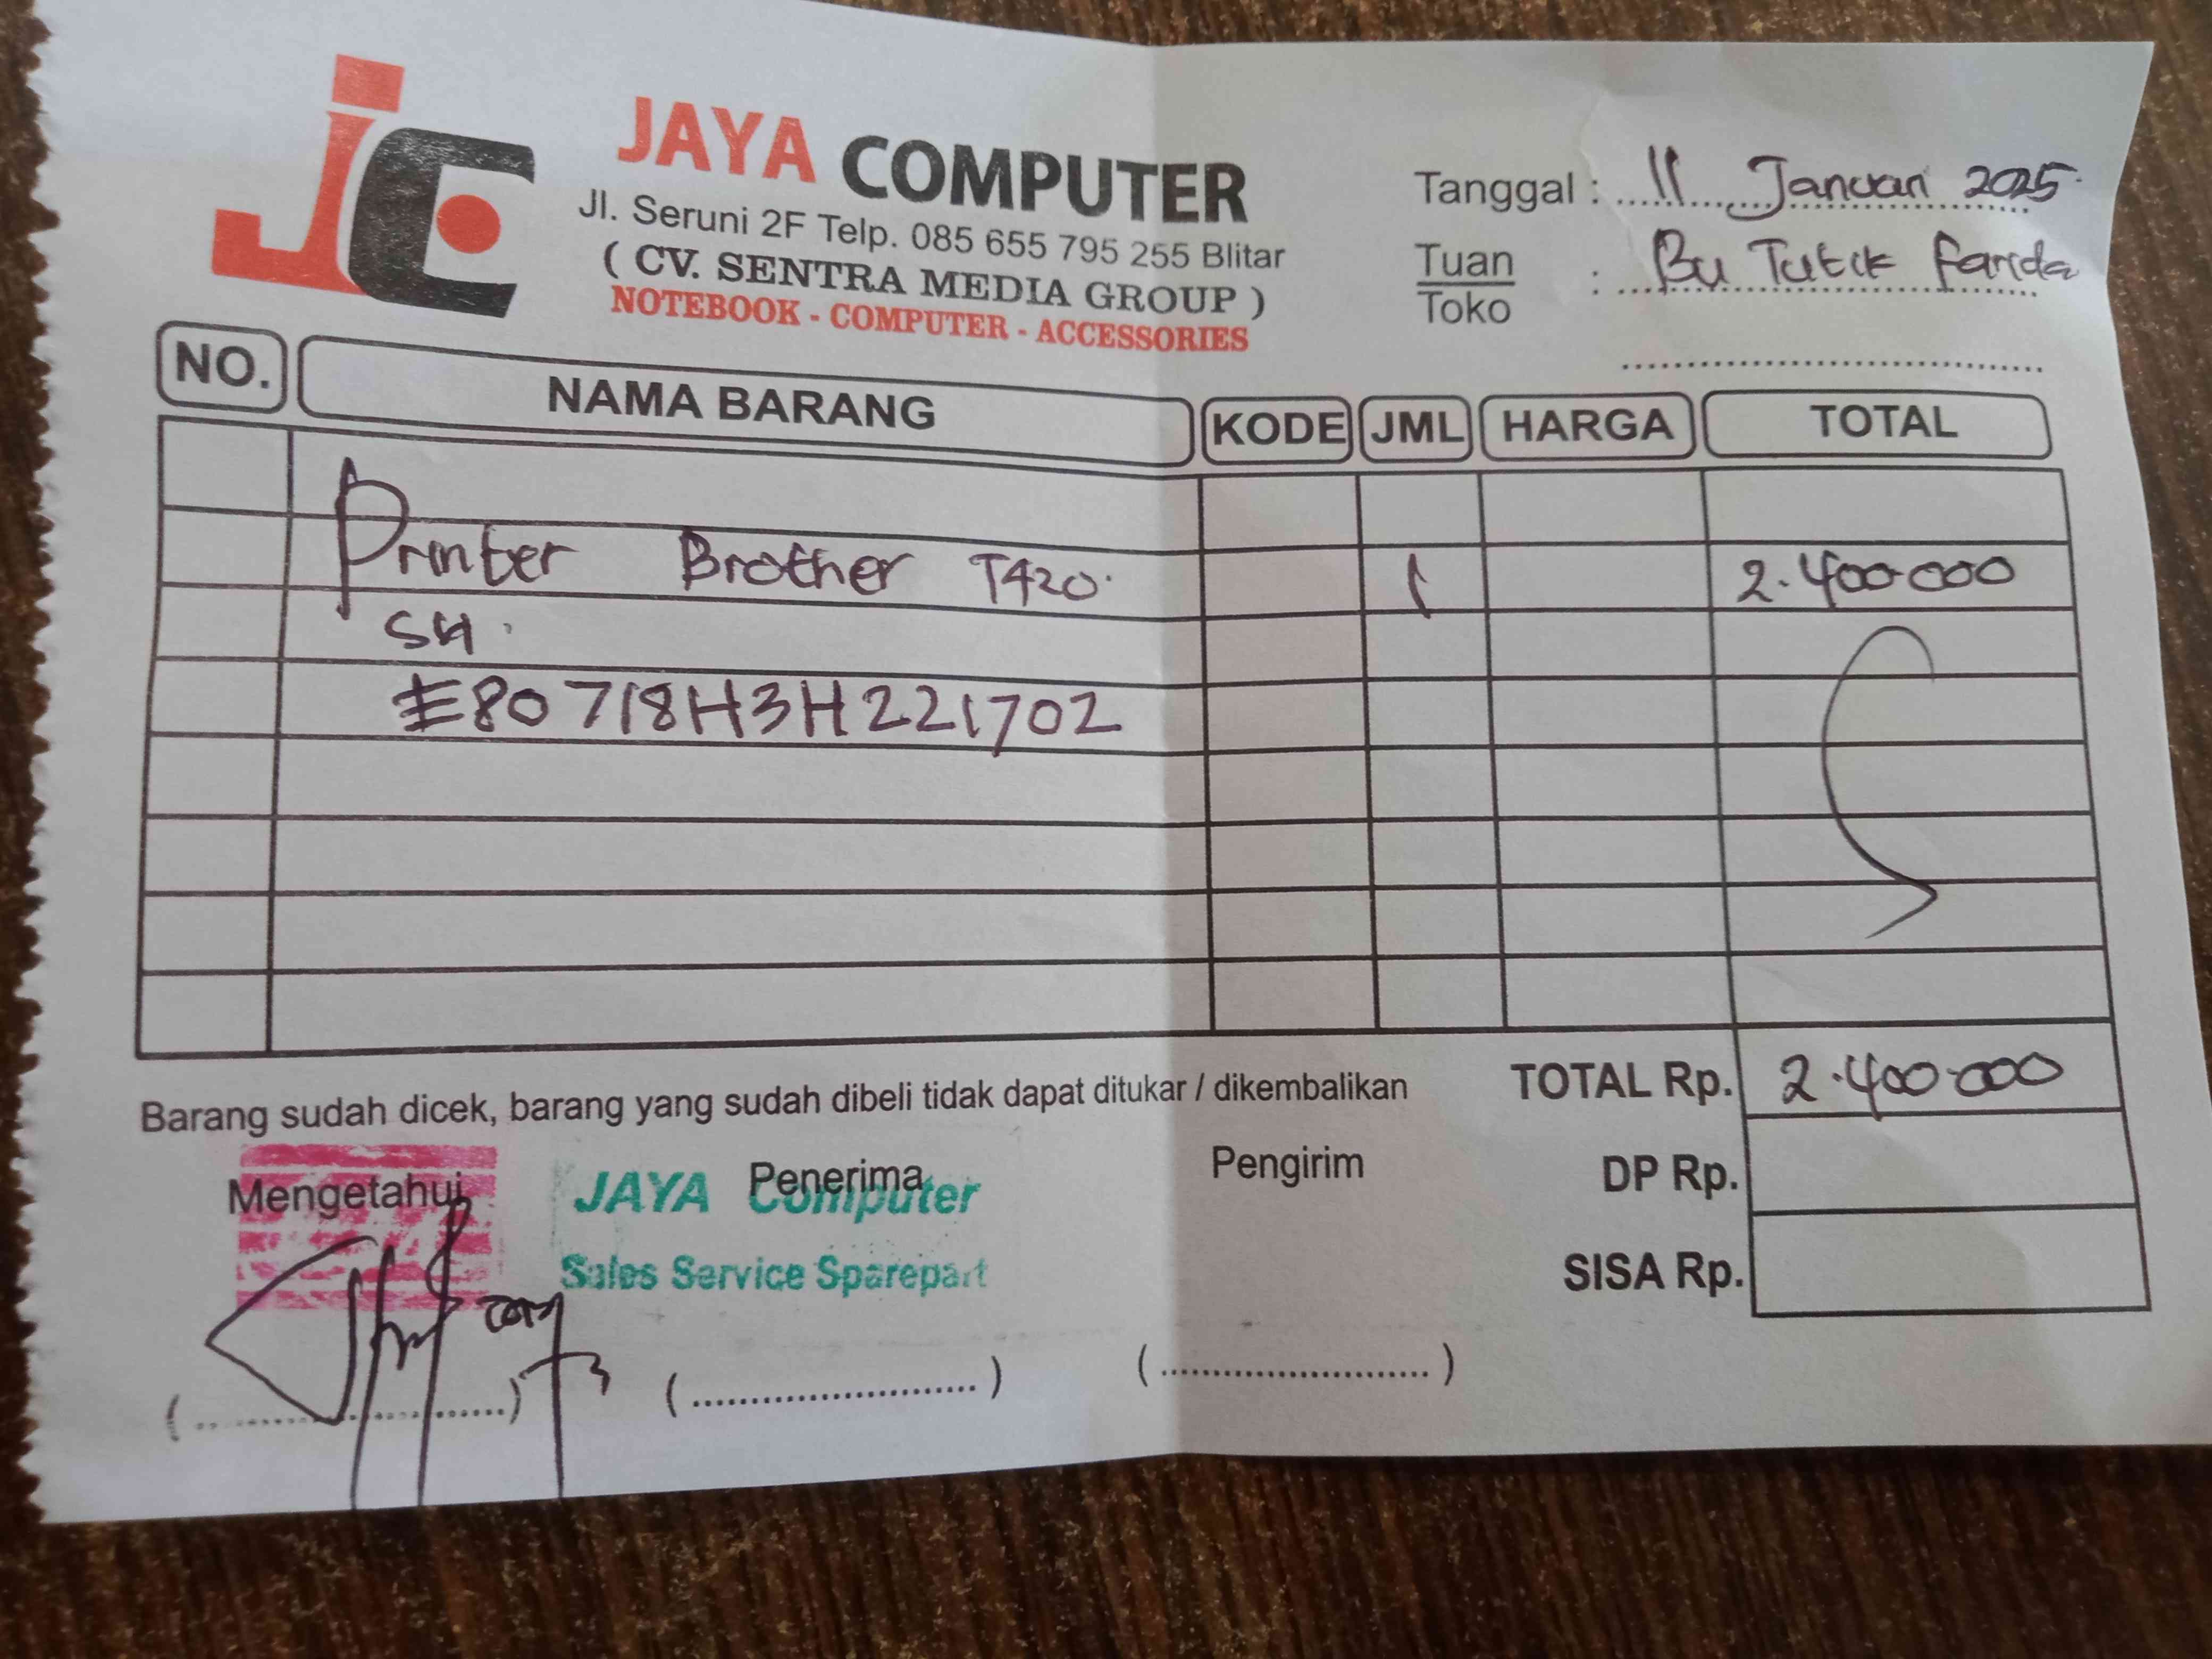 JC
JAYA COMPUTER
Jl. Seruni 2F Telp. 085 655 795 255 Blitar
( CV. SENTRA MEDIA GROUP )
NOTEBOOK - COMPUTER - ACCESSORIES
Tanggal : 11 Januari 2025
Tuan : Bu Tutik Farida
Toko
NO. NAMA BARANG KODE JML HARGA TOTAL
Printer Brother T420. 1 2.400.000
SN.
E80718H3H221702
TOTAL Rp. 2.400.000
Barang sudah dicek, barang yang sudah dibeli tidak dapat ditukar / dikembalikan
DP Rp.
SISA Rp.
Mengetahui Penerima Pengirim
JAYA Computer
Sales Service Sparepart